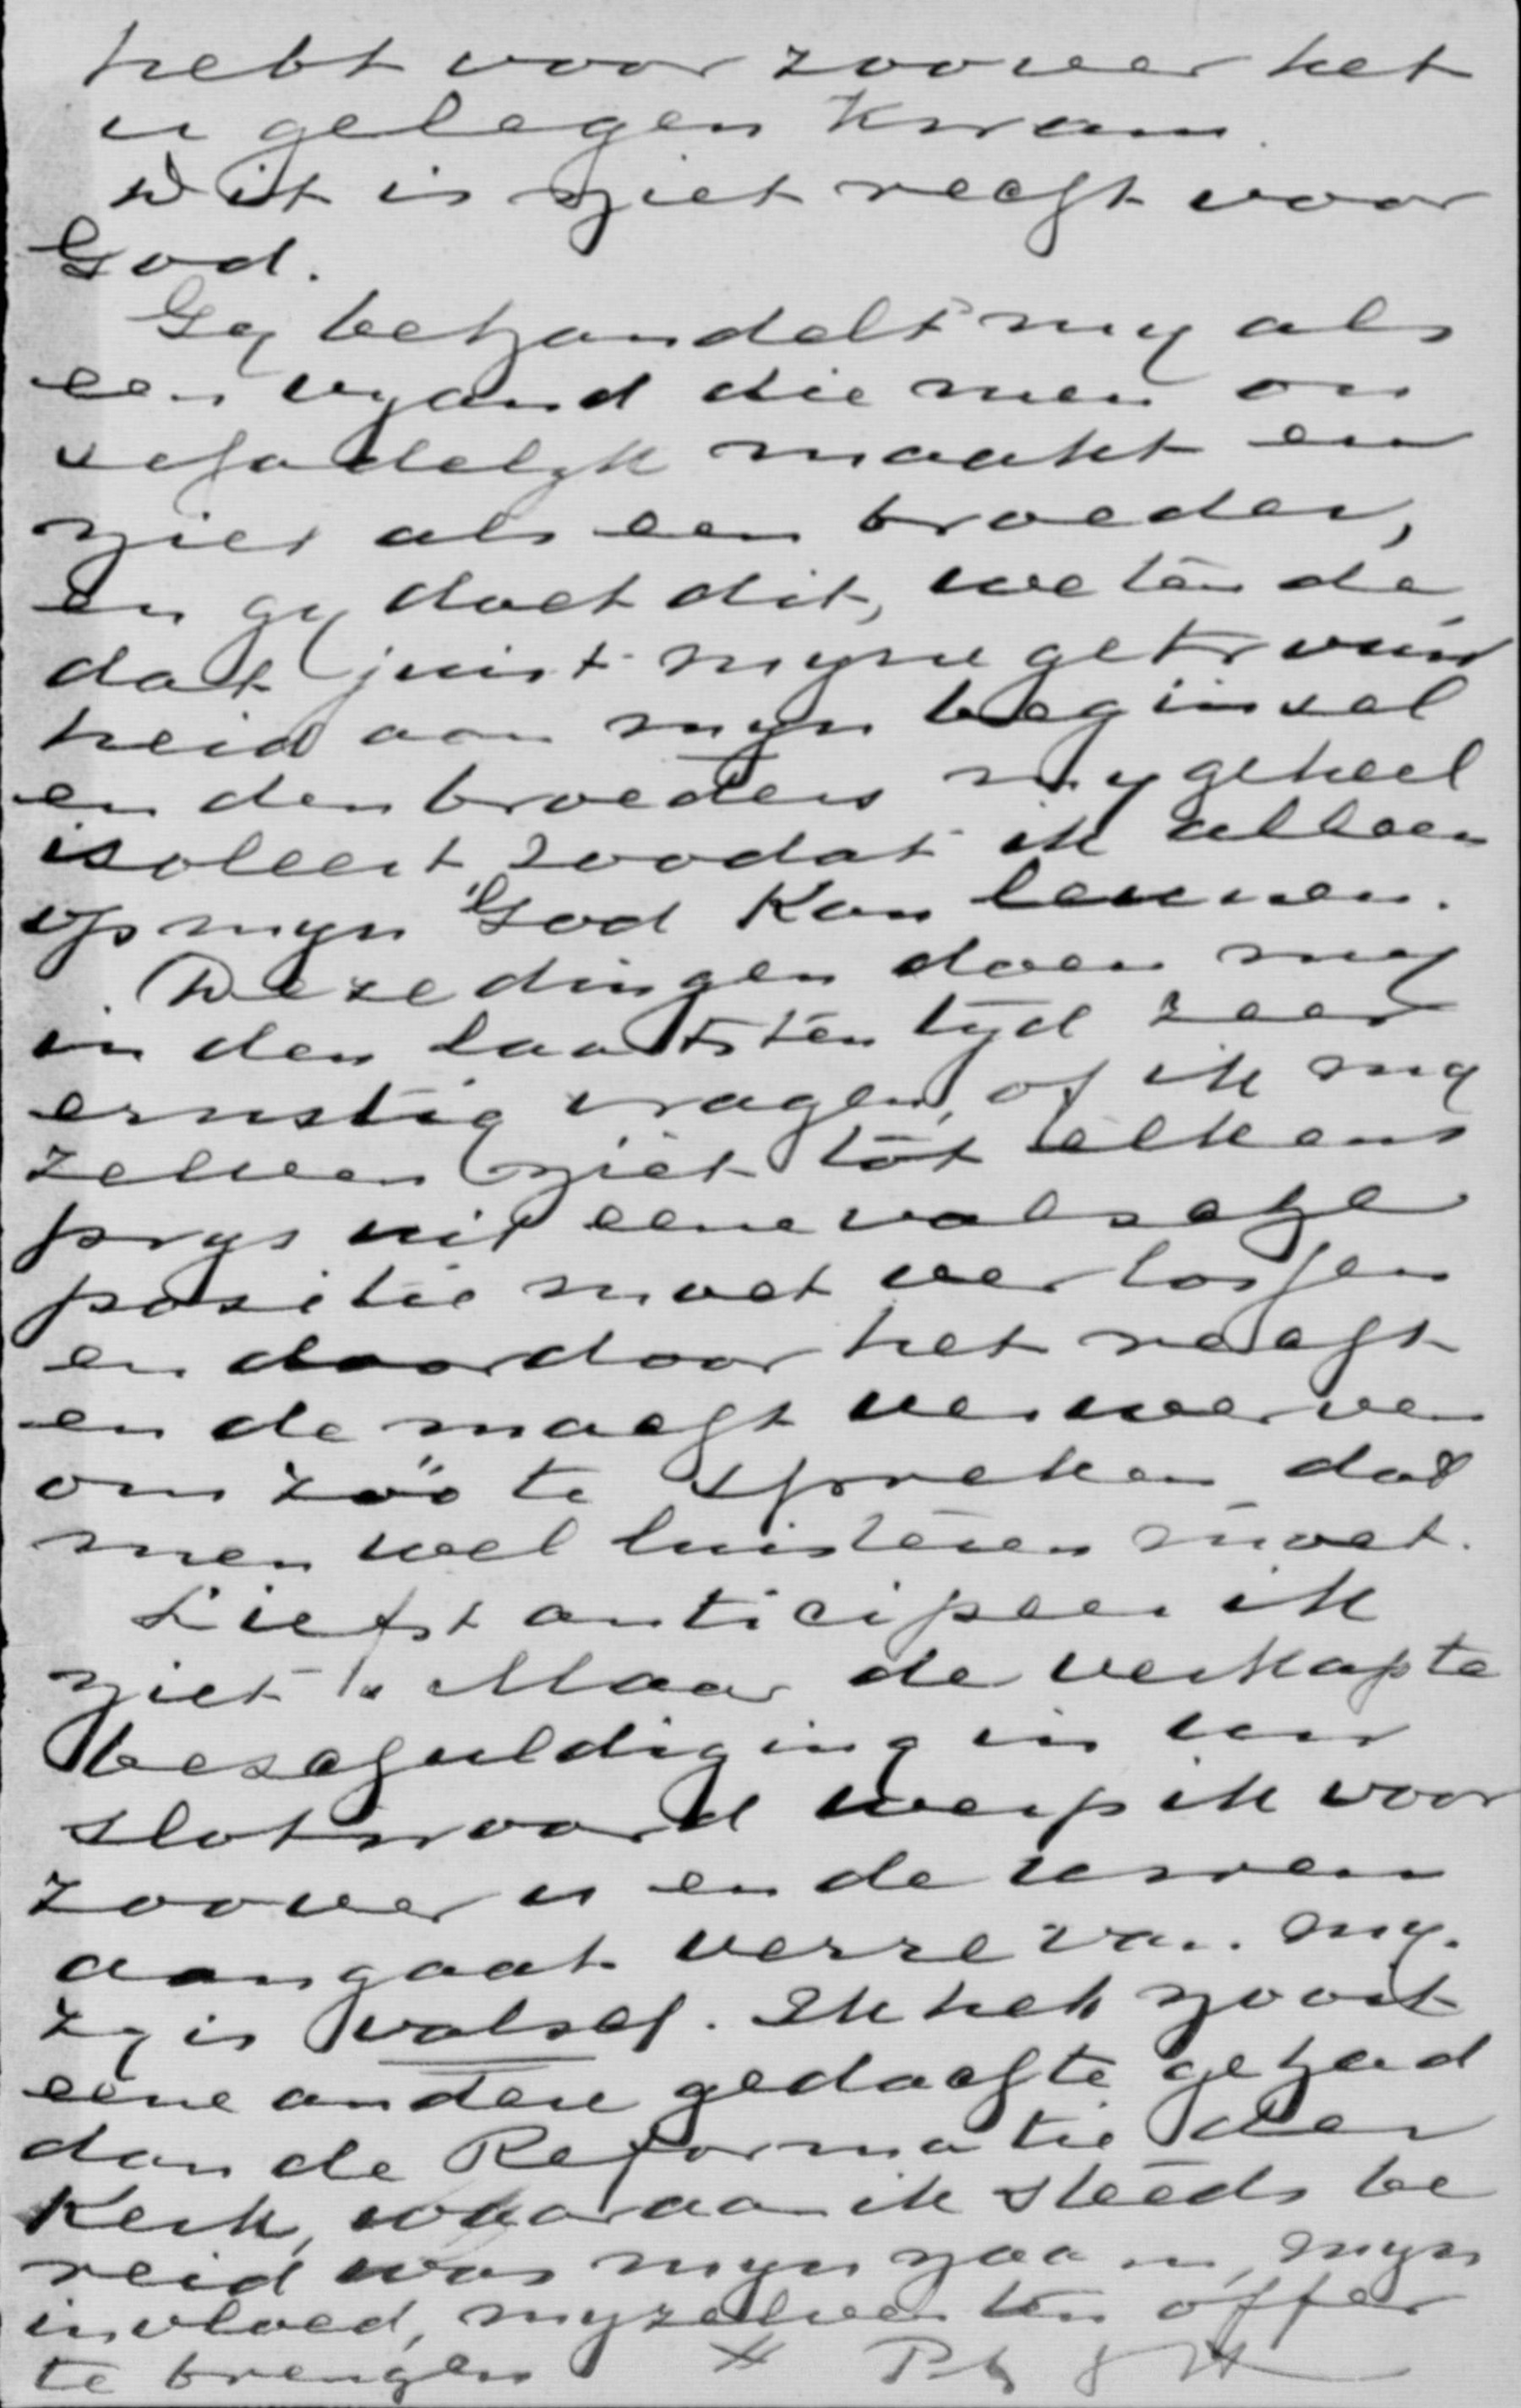 hebt voor zoover het
u gelegen kwam.
Dit is niet recht voor
God.
Gy behandelt my als
een vyand die men on
schadelyk maakt en
niet als een broeder,
en gy doet dit, wetende
dat juist myne getrouw
heid aan myn beginsel
en den broeders my geheel
isoleert, zoodat ik alleen
op myn God kan leunen.
Deze dingen doen my
in den laatsten tyd zeer
ernstig vragen, of ik my
zelven niet tot elken
prys uit eene valsche
positie moet verlossen
en daardoor het recht
en de macht verwerven
om zóó te spreken dat
men wel luisteren moet.
Liefst anticipeer ik
niet. Maar de verkapte
beschuldiging in uw
slotwoord werp ik voor
zoover u en de uwen
aangaat verre van my.
Zy is valsch. Ik heb nooit
eene andere gedachte gehad
dan de Reformatie der
Kerk, waaraan ik steeds be
reid was myn naam, myn
invloed, myzelven ten offer
te brengen